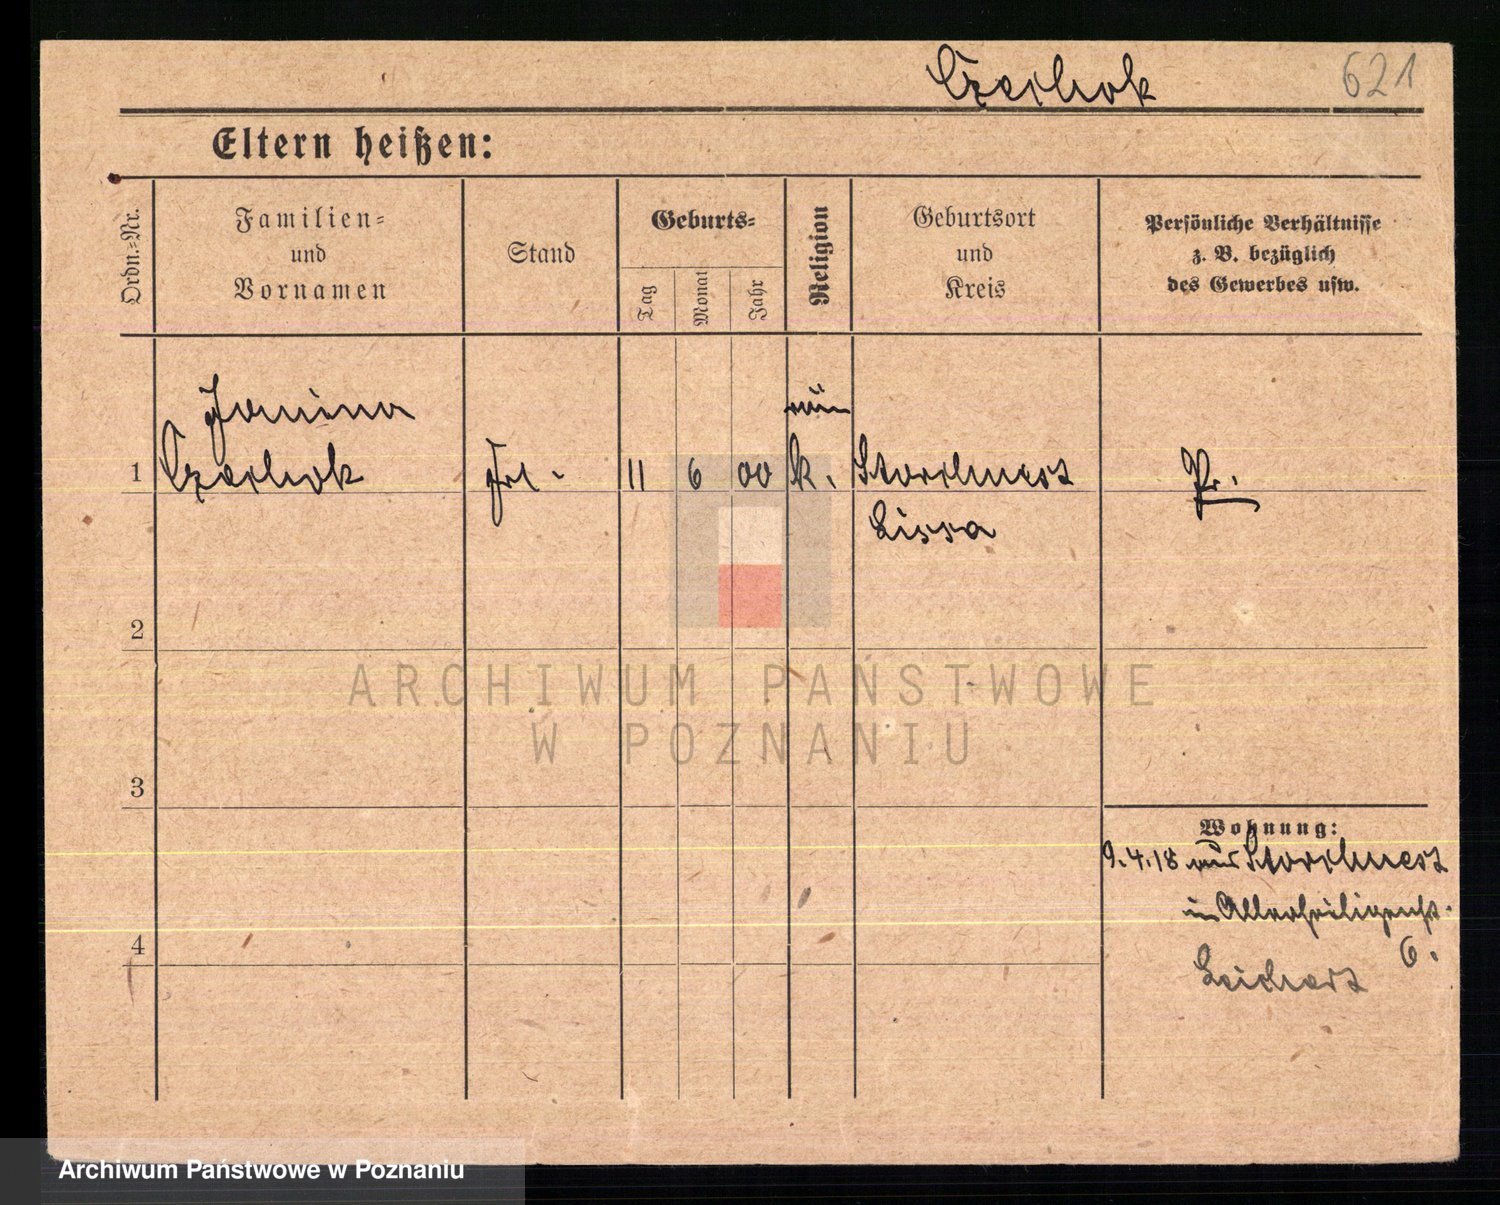 Czechok
621
Eltern heißen:
Ordn.=Nr.
Familien=
und
Vornamen
Stand
Geburts=
Tag
Monat
Jahr
Religion
Geburtsort
und
Kreis
Persönliche Verhältnisse
z. B. bezüglich
des Gewerbes usw.
Janina
röm
1 Czechok Frl. 11 6 00 k. Storchnest Pr.
Lissa
2
3
Wohnung:
9.4.18 aus Storchnest
in Allerheiligenstr.
4
6.
ARCHIWUM PAŃSTWOWE
W POZNANIU
Archiwum Państwowe w Poznaniu